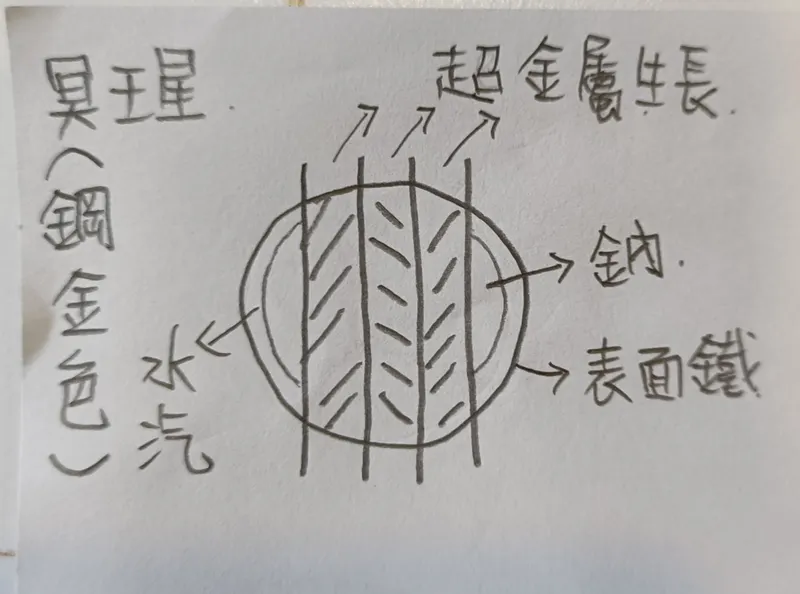 冥王星.
(鋼金色)
超金屬生長.
鈉.
表面鐵
水汽